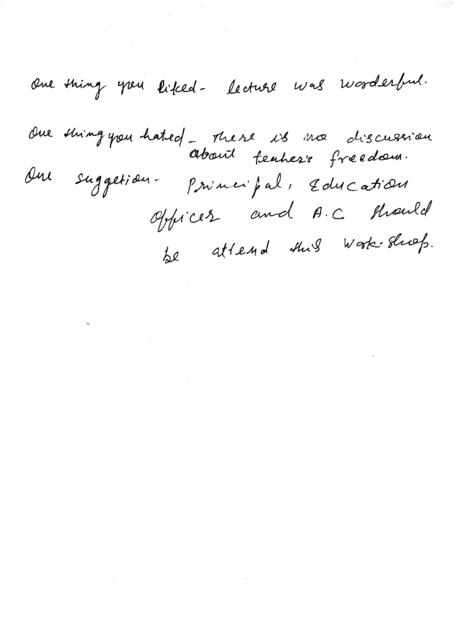 One thing you liked - lecture was wonderful.
One thing you hated - There is no discussion
about teachers freedom.
One suggetion - Principal, Education
Officer and A.C should
be attend this work-shop.